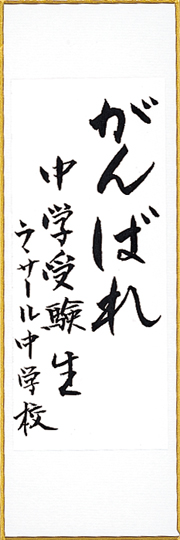 がんばれ
中学受験生
ラ・サール中学校